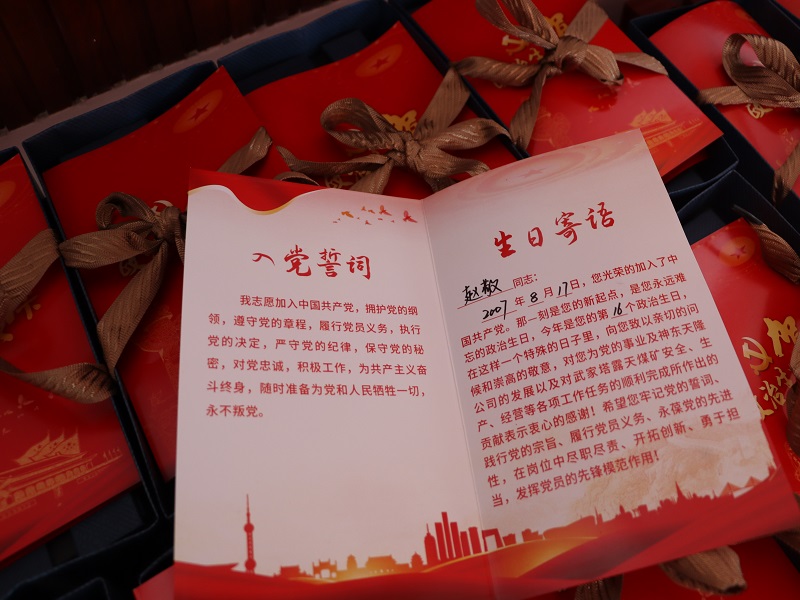 入党誓词
我志愿加入中国共产党，拥护党的纲
领，遵守党的章程，履行党员义务，执行
党的决定，严守党的纪律，保守党的秘
密，对党忠诚，积极工作，为共产主义奋
斗终身，随时准备为党和人民牺牲一切，
永不叛党。
生日寄语
赵敬 同志：
2007 年 8 月 17 日，您光荣的加入了中
国共产党。那一刻是您的新起点，是您永远难
忘的政治生日，今年是您的第 16 个政治生日，
在这样一个特殊的日子里，向您致以亲切的问
候和崇高的敬意，对您为党的事业及神东天隆
公司的发展以及对武家塔露天煤矿安全、生
产、经营等各项工作任务的顺利完成所作出的
贡献表示衷心的感谢！希望您牢记党的誓词、
践行党的宗旨、履行党员义务、永葆党的先进
性，在岗位中尽职尽责、开拓创新、勇于担
当，发挥党员的先锋模范作用！